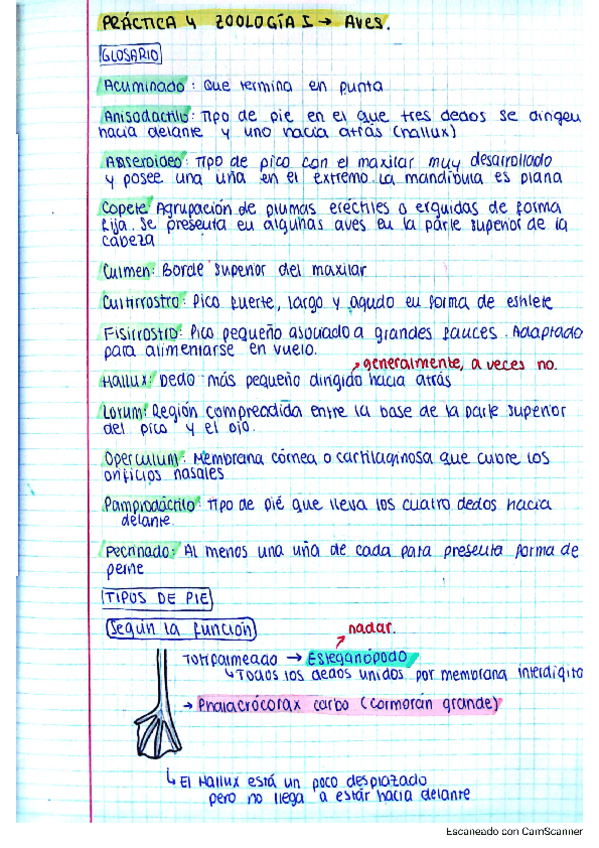 PRÁCTICA 4 ZOOLOGÍA I → Aves.
GLOSARIO
Acuminado: Que termina en punta
Anisodáctilo: Tipo de pie en el que tres dedos se dirigen
hacia delante y uno hacia atrás (hallux)
Anseroideo: Tipo de pico con el maxilar muy desarrollado
y posee una uña en el extremo. La mandíbula es plana
Copete: Agrupación de plumas eréctiles o erguidas de forma
fija. Se presenta en algunas aves en la parte superior de la
cabeza
Culmen: Borde superior del maxilar
Cultirrostro: Pico fuerte, largo y agudo en forma de estilete
Fisirrostro: Pico pequeño asociado a grandes fauces. Adaptado
para alimentarse en vuelo.
generalmente, a veces no.
Hallux: Dedo más pequeño dirigido hacia atrás
Lorum: Región comprendida entre la base de la parte superior
del pico y el ojo.
Operculum: Membrana córnea o cartilaginosa que cubre los
orificios nasales
Pamprodáctilo: Tipo de pié que lleva los cuatro dedos hacia
delante
Pectinado: Al menos una uña de cada pata presenta forma de
peine
TIPOS DE PIE
Según la función
nadar.
Totipalmeado → Esteganópodo
↳ Todos los dedos unidos por membrana interdigita
→ Phalacrócorax carbo (cormorán grande)
↳ El Hallux está un poco desplazado
pero no llega a estar hacia delante
Escaneado con CamScanner